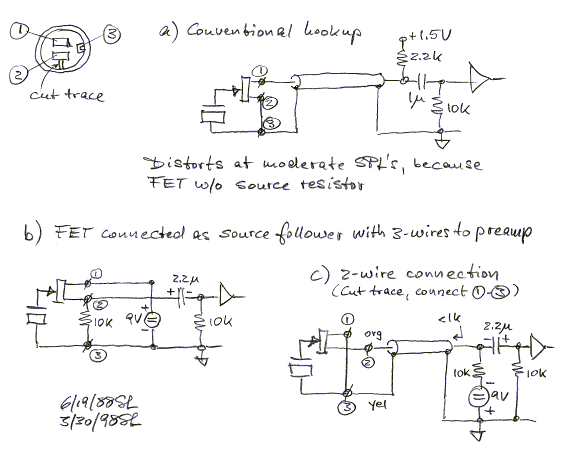 ① ③
a) Conventional hookup
②
cut trace
+1.5V
2.2k
①
②
③
1μ
10k
Distorts at moderate SPL's, because
FET w/o source resistor
b) FET connected as source follower with 3-wires to preamp
①
②
③
10K
9V
+
2.2μ
+ -
10k
c) 2-wire connection
(Cut trace, connect ①-③)
①
org
②
③ yel
<1k
2.2μ
- +
10k
-
9V
+
10k
6/19/88SL
3/30/98SL